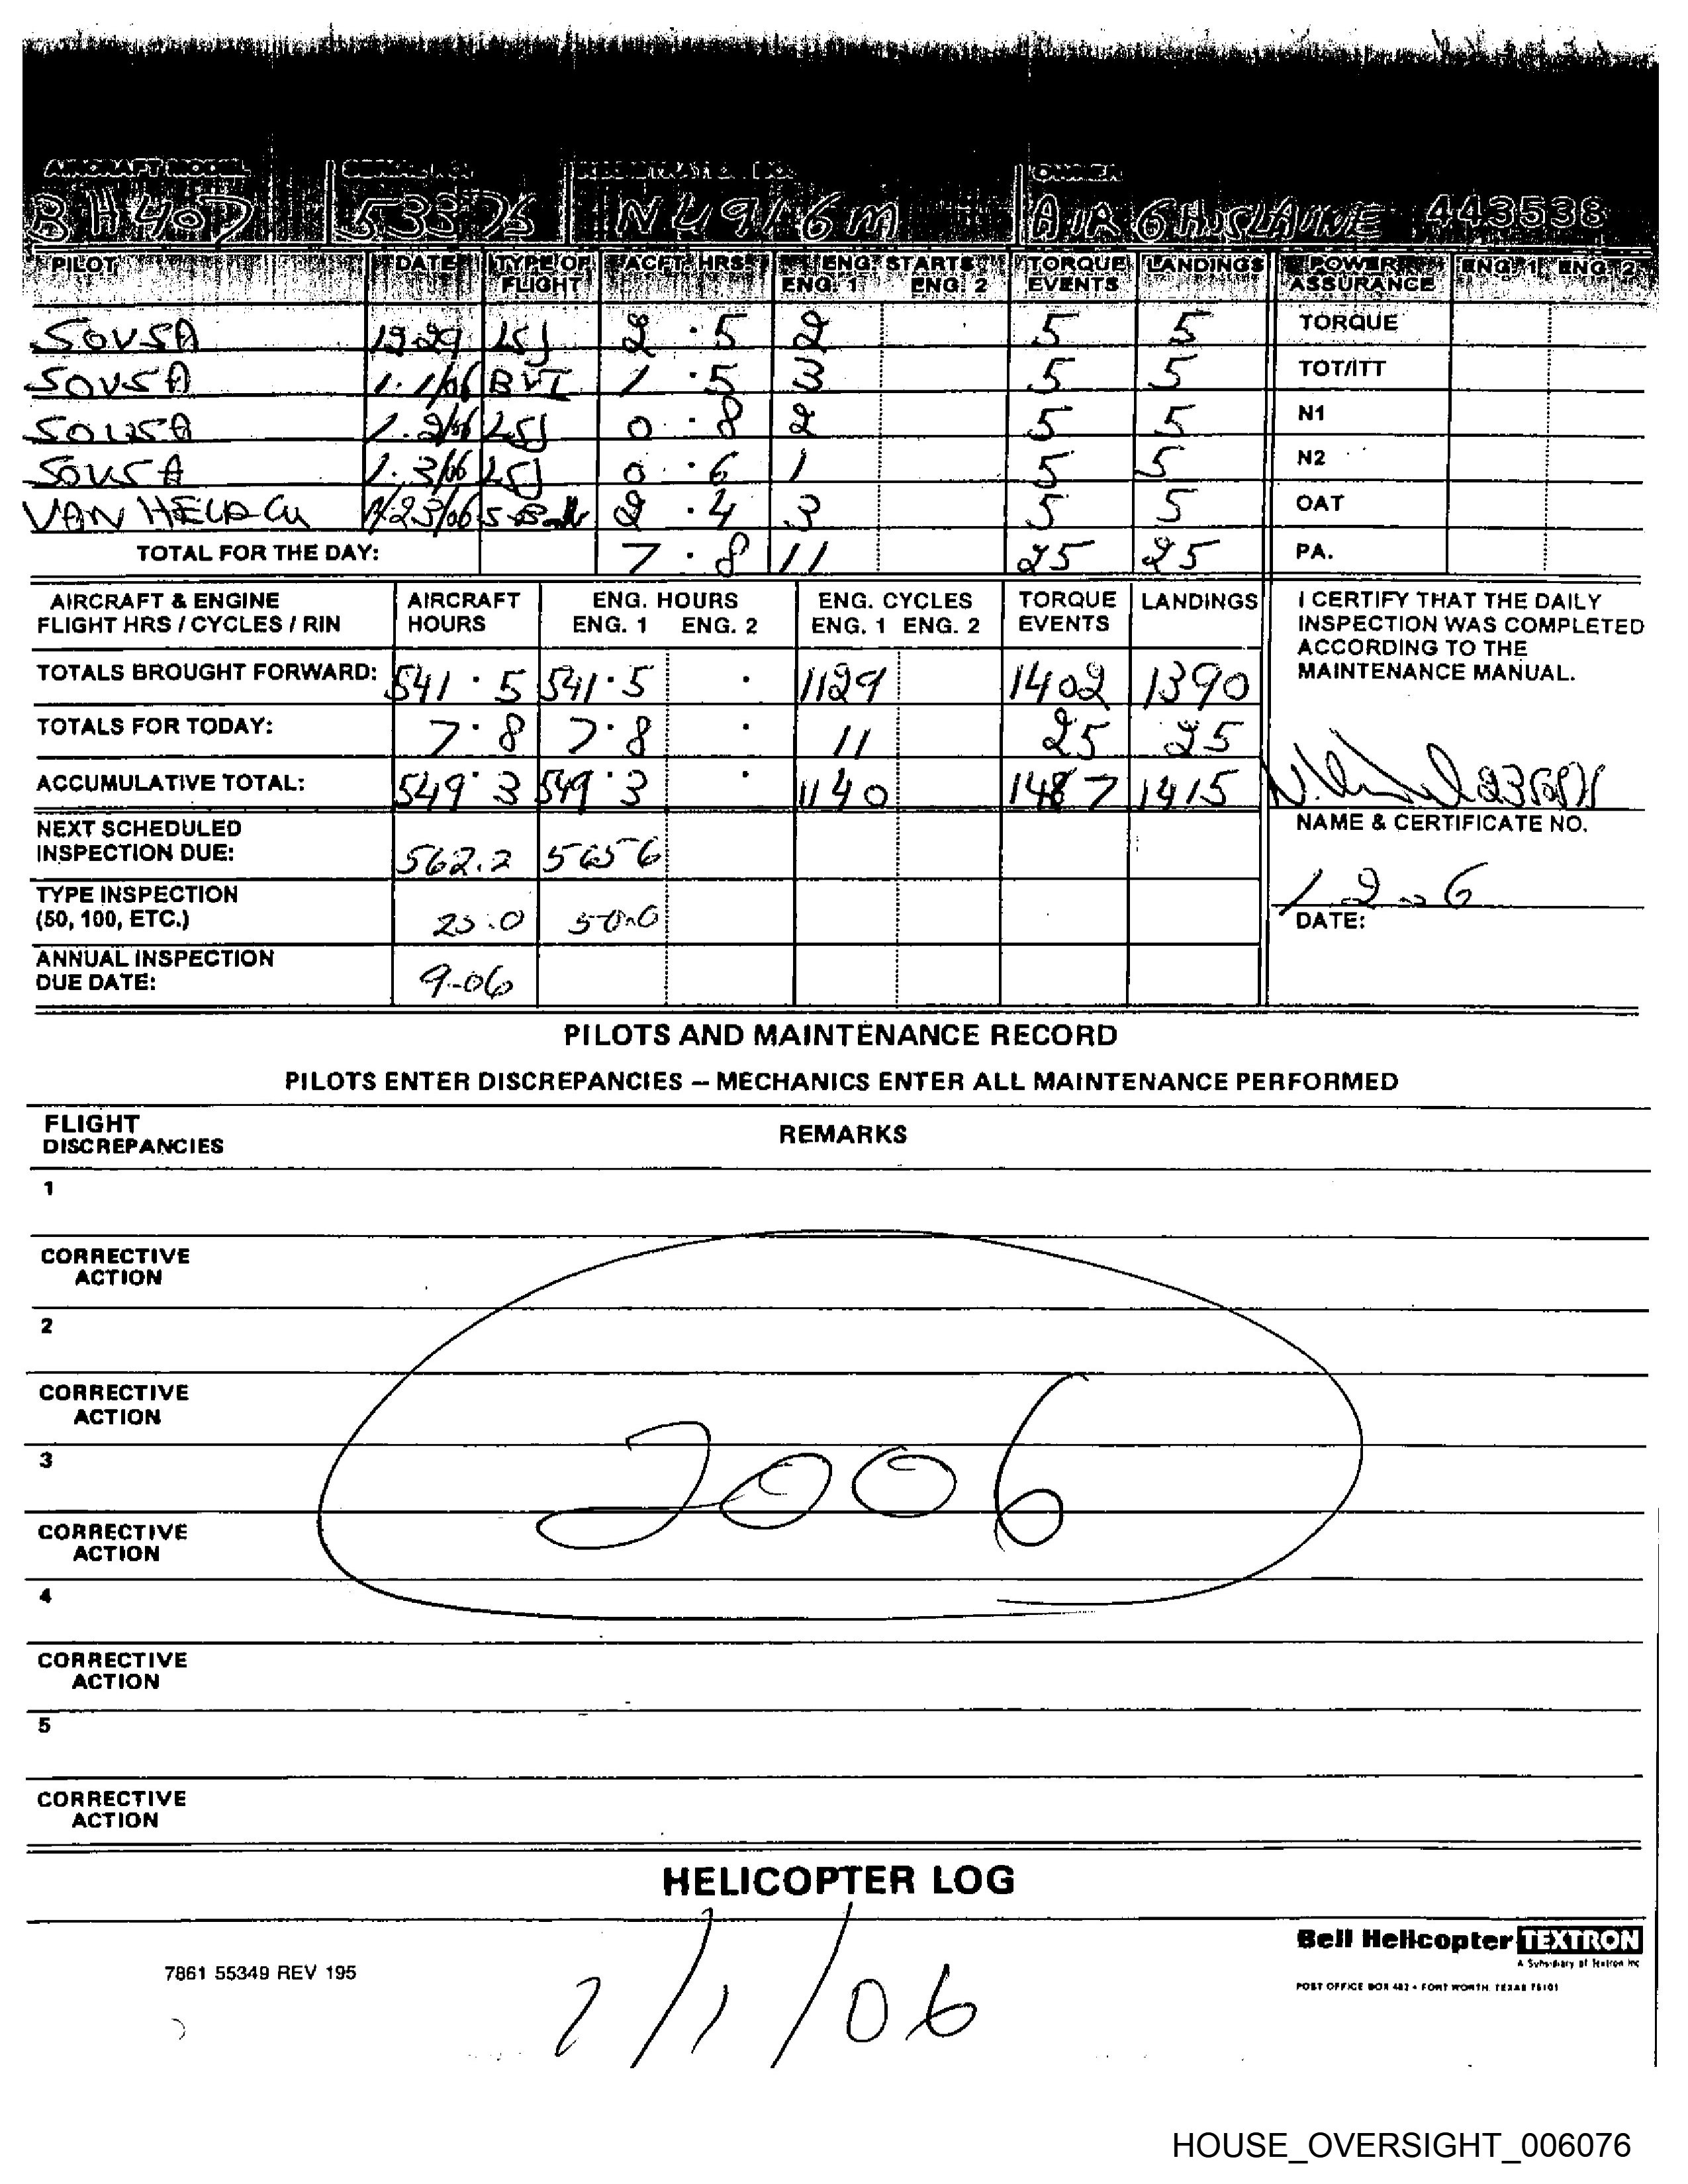 AIRCRAFT MODEL SERIAL NO. REGISTRATION NO. OWNER
BH407 53375 N4916M AIR GHISLAINE 443538
PILOT DATE TYPE OF FLIGHT ACFT. HRS. ENG. STARTS ENG. 1 ENG. 2 TORQUE EVENTS LANDINGS POWER ASSURANCE ENG. 1 ENG. 2
SOUSA 12.29 LSJ 2 . 5 2 5 5 TORQUE
SOUSA 1.1/06 BVI 1 . 5 3 5 5 TOT/ITT
SOUSA 1.2/06 LSJ 0 . 8 2 5 5 N1
SOUSA 1.3/06 LSJ 0 . 6 1 5 5 N2
VAN 1/23/06 2 . 4 3 5 5 OAT
TOTAL FOR THE DAY: 7 . 8 11 25 25 PA.
AIRCRAFT & ENGINE FLIGHT HRS / CYCLES / RIN AIRCRAFT HOURS ENG. HOURS ENG. 1 ENG. 2 ENG. CYCLES ENG. 1 ENG. 2 TORQUE EVENTS LANDINGS
TOTALS BROUGHT FORWARD: 541 . 5 541 . 5 . 1129 1402 1390
TOTALS FOR TODAY: 7 . 8 7 . 8 . 11 25 25
ACCUMULATIVE TOTAL: 549 . 3 549 . 3 . 1140 1487 1415
NEXT SCHEDULED INSPECTION DUE: 562.2 565 6
TYPE INSPECTION (50, 100, ETC.) 25.0 50.0
ANNUAL INSPECTION DUE DATE: 9-06
I CERTIFY THAT THE DAILY
INSPECTION WAS COMPLETED
ACCORDING TO THE
MAINTENANCE MANUAL.
NAME & CERTIFICATE NO.
DATE:
PILOTS AND MAINTENANCE RECORD
PILOTS ENTER DISCREPANCIES – MECHANICS ENTER ALL MAINTENANCE PERFORMED
FLIGHT DISCREPANCIES REMARKS
1
CORRECTIVE ACTION
2
CORRECTIVE ACTION
3
2006
CORRECTIVE ACTION
4
CORRECTIVE ACTION
5
CORRECTIVE ACTION
HELICOPTER LOG
Bell Helicopter TEXTRON
A Subsidiary of Textron Inc
POST OFFICE BOX 482 • FORT WORTH, TEXAS 76101
7861 55349 REV 195
1/1/06
HOUSE_OVERSIGHT_006076